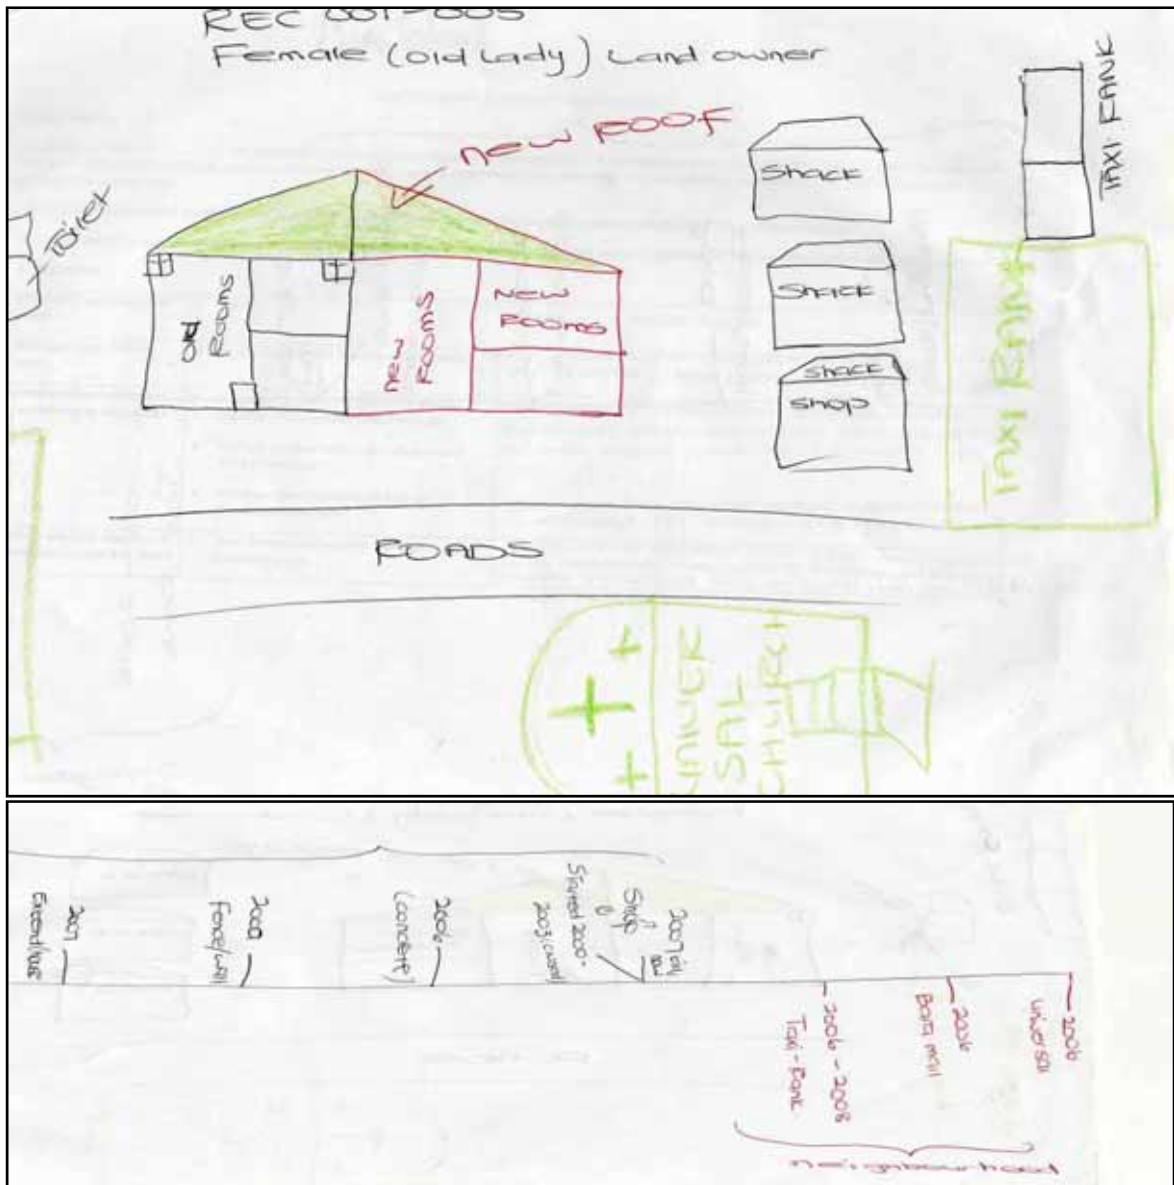 REC 001-005
Female (old Lady) Land owner
new ROOF
Toilet
old
Rooms
new
Rooms
NEW
ROOMS
Shack
Shack
Shack
Shop
TAXI RANK
TAXI RANK
ROADS
UNIVER
SAL
CHURCH
2007
2000
Fence/wall
2006
(concrete)
Started 2000-
Shop
2007
2006 - 2008
Taxi-Rank
2006
Bara mall
2006
universal
neighbourhood